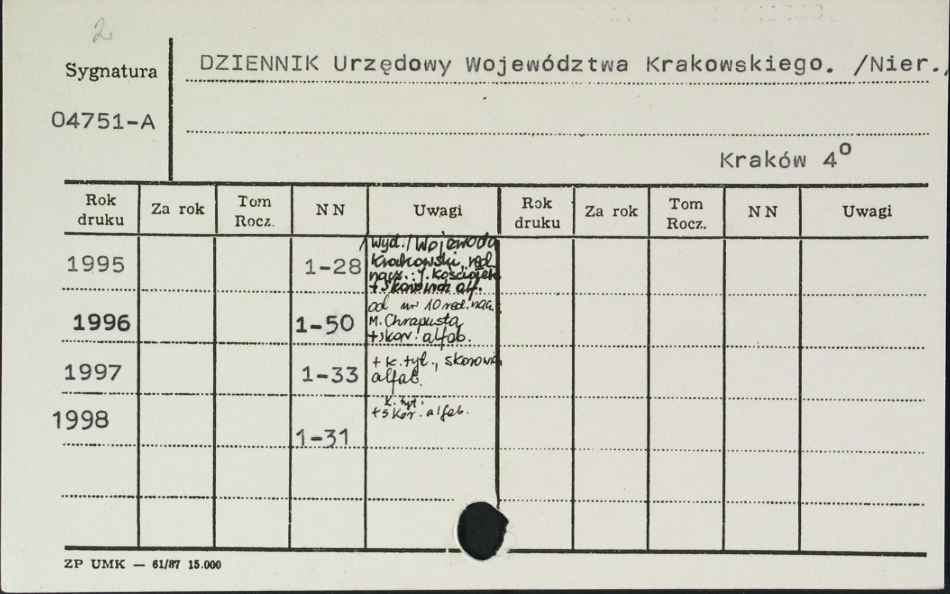 2
Sygnatura
DZIENNIK Urzędowy Województwa Krakowskiego. /Nier./
04751-A
Kraków 4º
Rok druku Za rok Tom Rocz. NN Uwagi Rok druku Za rok Tom Rocz. NN Uwagi
1995 1-28 /Wyd./Wojewoda
Krakowski, red.
nacz.: J.
+ skorowidz alf.
1996 1-50 od nr 10 red. nacz.
M. Chrapusta
+ skor. alfab.
1997 1-33 + k. tyt., skorowidz
alfab.
1998 1-31 k. tyt.
+ skor. alfab.
ZP UMK — 61/87 15.000